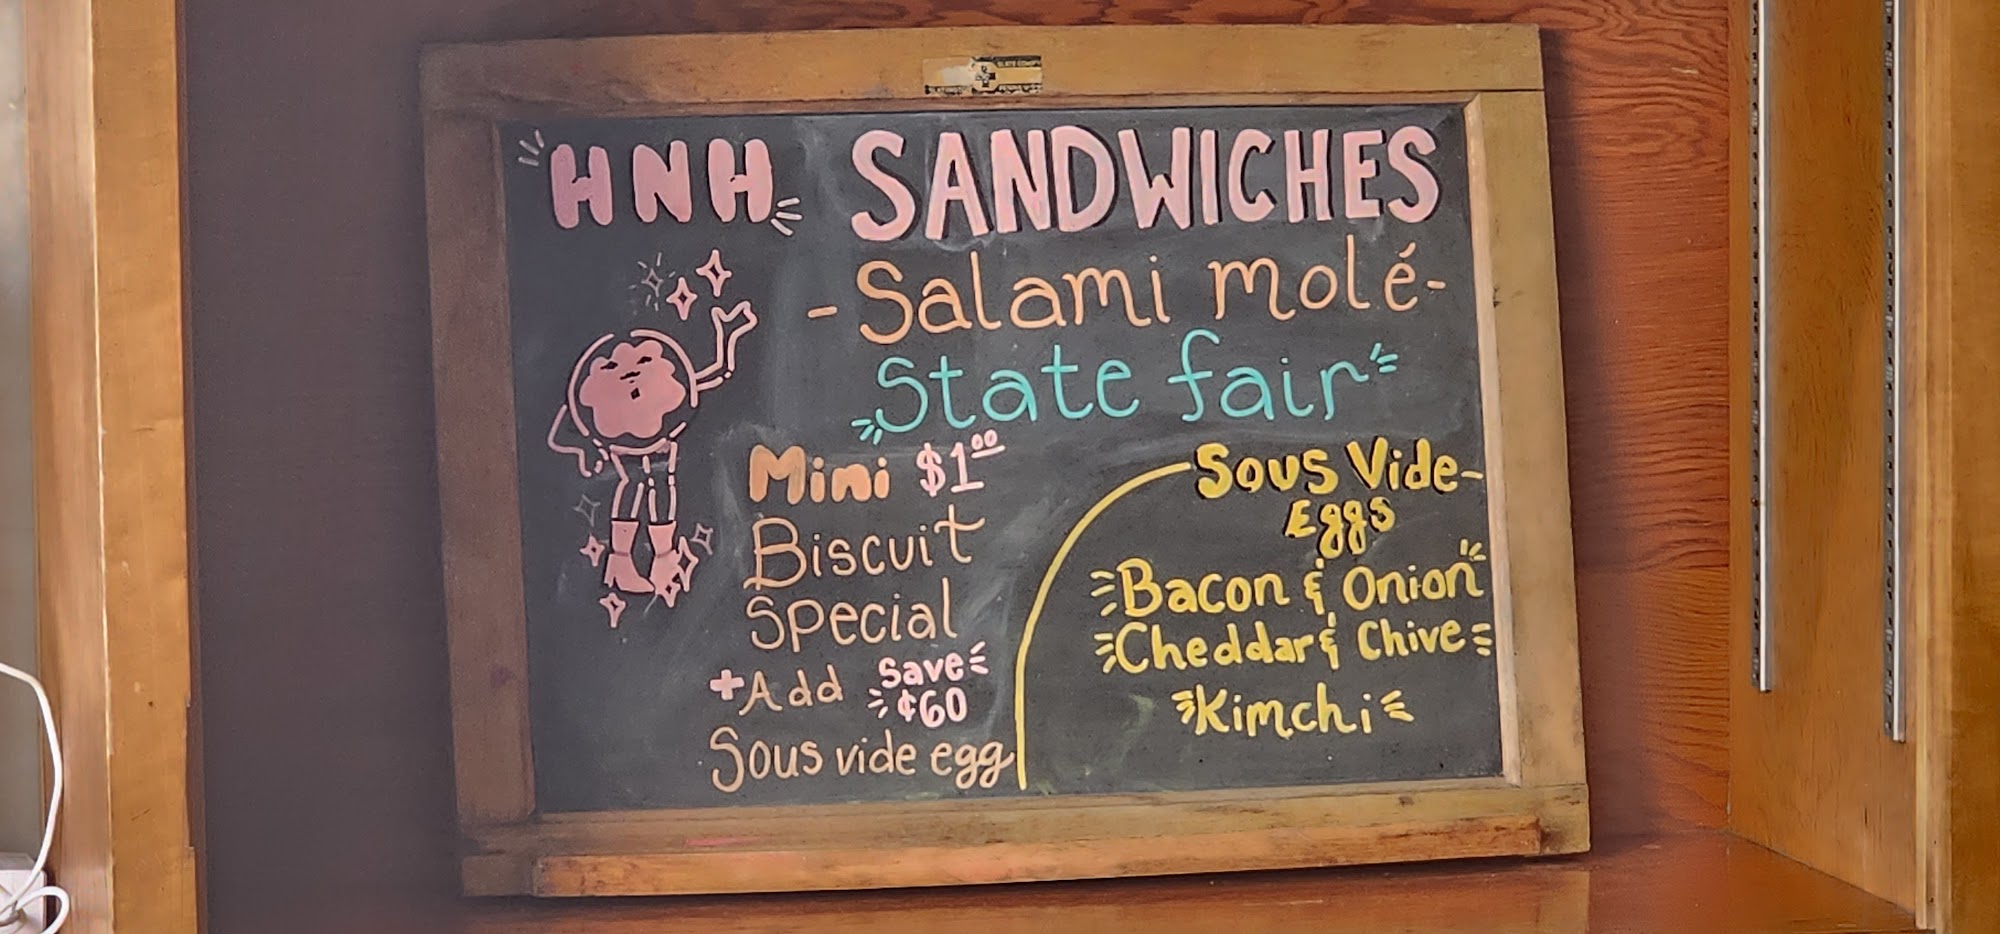 HNH SANDWICHES
-Salami molé-
State fair
Mini $1.00
Biscuit
Special
+Add Save
¢60
Sous vide egg
Sous Vide-
Eggs
Bacon & Onion
Cheddar & Chive
Kimchi